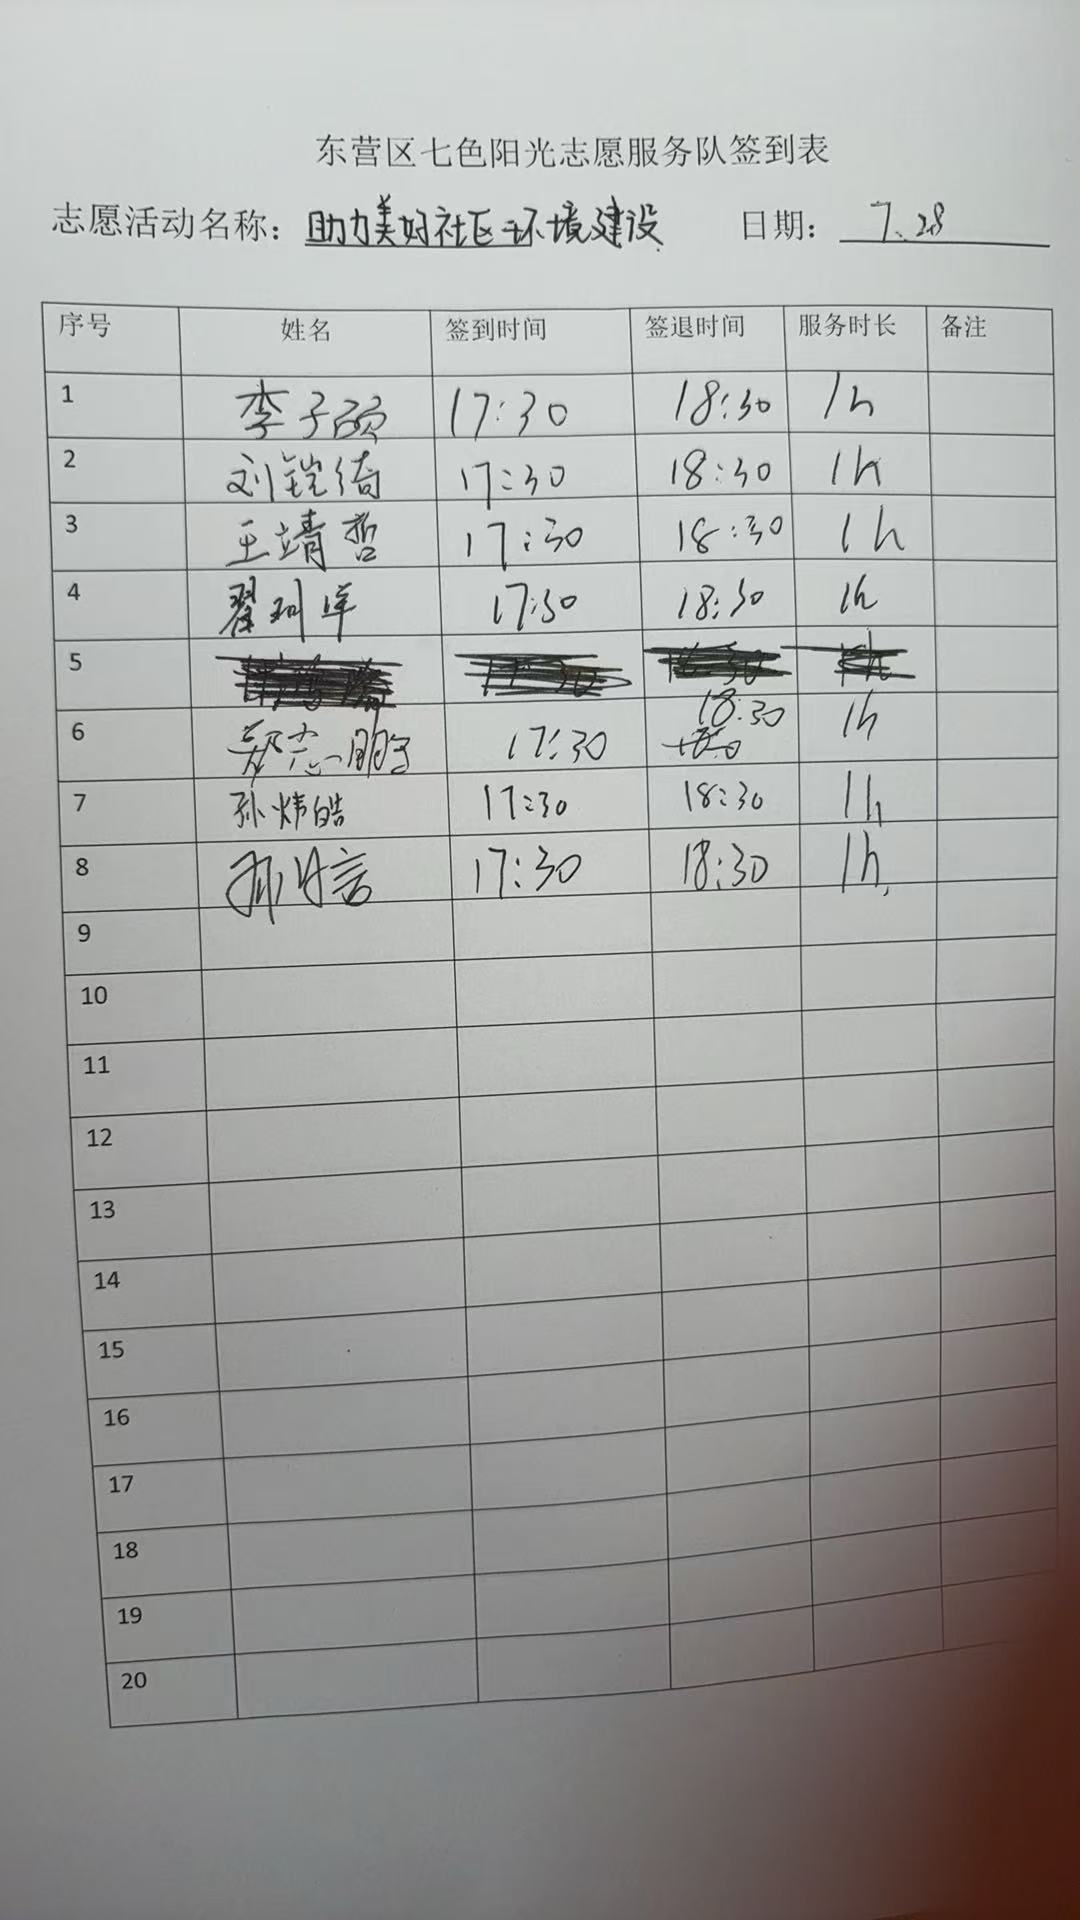 东营区七色阳光志愿服务队签到表
志愿活动名称：助力美好社区环境建设 日期：7.28
序号 姓名 签到时间 签退时间 服务时长 备注
1 李子硕 17:30 18:30 1h
2 刘铠绮 17:30 18:30 1h
3 王靖哲 17:30 18:30 1h
4 翟 17:30 18:30 1h
5
6 郑志鹏 17:30 18:30 1h
7 孙炜皓 17:30 18:30 1h
8 17:30 18:30 1h
9
10
11
12
13
14
15
16
17
18
19
20